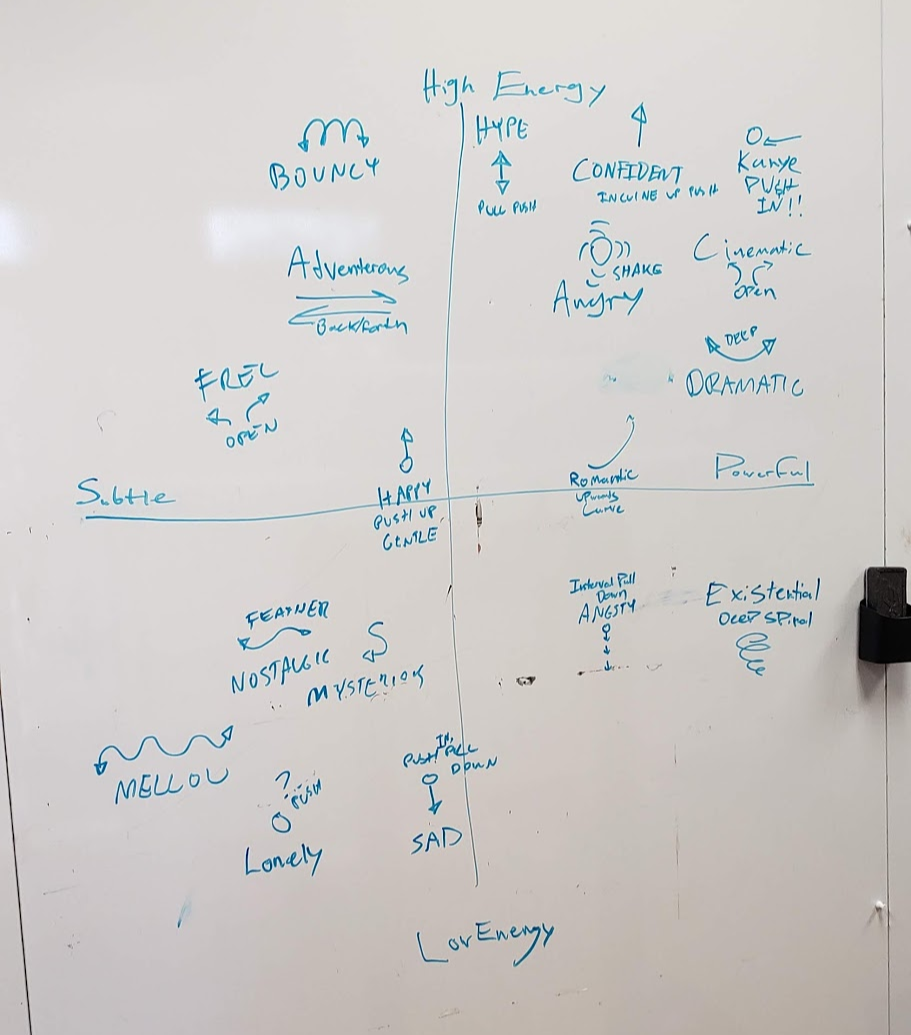 High Energy
BOUNCY
HYPE
PULL PUSH
CONFIDENT
INCLINE UP PUSH
Kanye
PUSH
IN!!
Adventerous
Back/forth
SHAKE
Angry
Cinematic
open
FREE
OPEN
DEEP
DRAMATIC
Subtle
HAPPY
PUSH UP
GENTLE
Romantic
upwards
Curve
Powerful
FEATHER
NOSTALGIC
MYSTERIOS
Interval Pull
Down
ANGSTY
Existential
Deep SPiral
MELLOW
?
PUSH
Lonely
IN,
PUSH PULL
DOWN
SAD
Low Energy